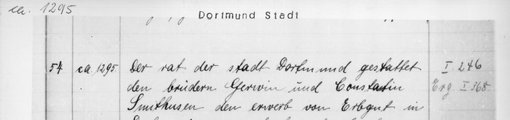 ca. 1295
Dortmund Stadt
54 ca 1295 Der rat der stadt Dortmund gestattet I 246
den brüdern Gerwin und Constantin Erg I 368
Smithusen den erwerb von Erbgut in